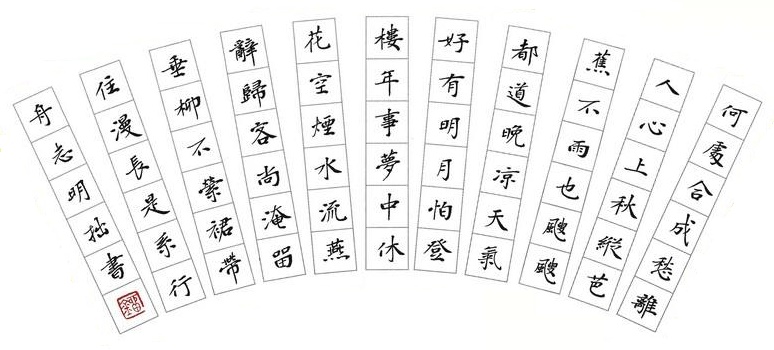 何處合成愁離
人心上秋縱芭
蕉不雨也颼颼
都道晚凉天氣
好有明月怕登
樓年事夢中休
花空煙水流燕
辭歸客尚淹留
垂柳不縈裙帶
住漫長是系行
舟志明拙書